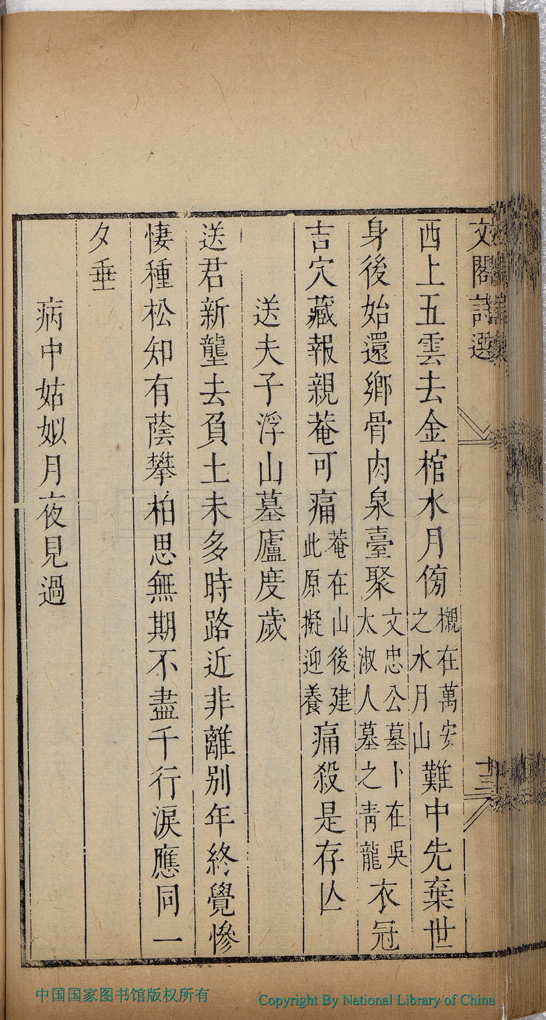 文閣詩選
十三
西上五雲去金棺水月傍櫬在萬安之水月山難中先棄世
身後始還鄉骨肉泉臺聚文忠公墓卜在吳太淑人墓之青龍衣冠
吉穴藏報親菴可痛菴在山後建此原擬迎養痛殺是存亾
送夫子浮山墓廬度歲
送君新壟去負土未多時路近非離别年終覺慘
悽種松知有蔭攀柏思無期不盡千行淚應同一
夕垂
病中姑姒月夜見過
中国国家图书馆版权所有
Copyright By National Library of China